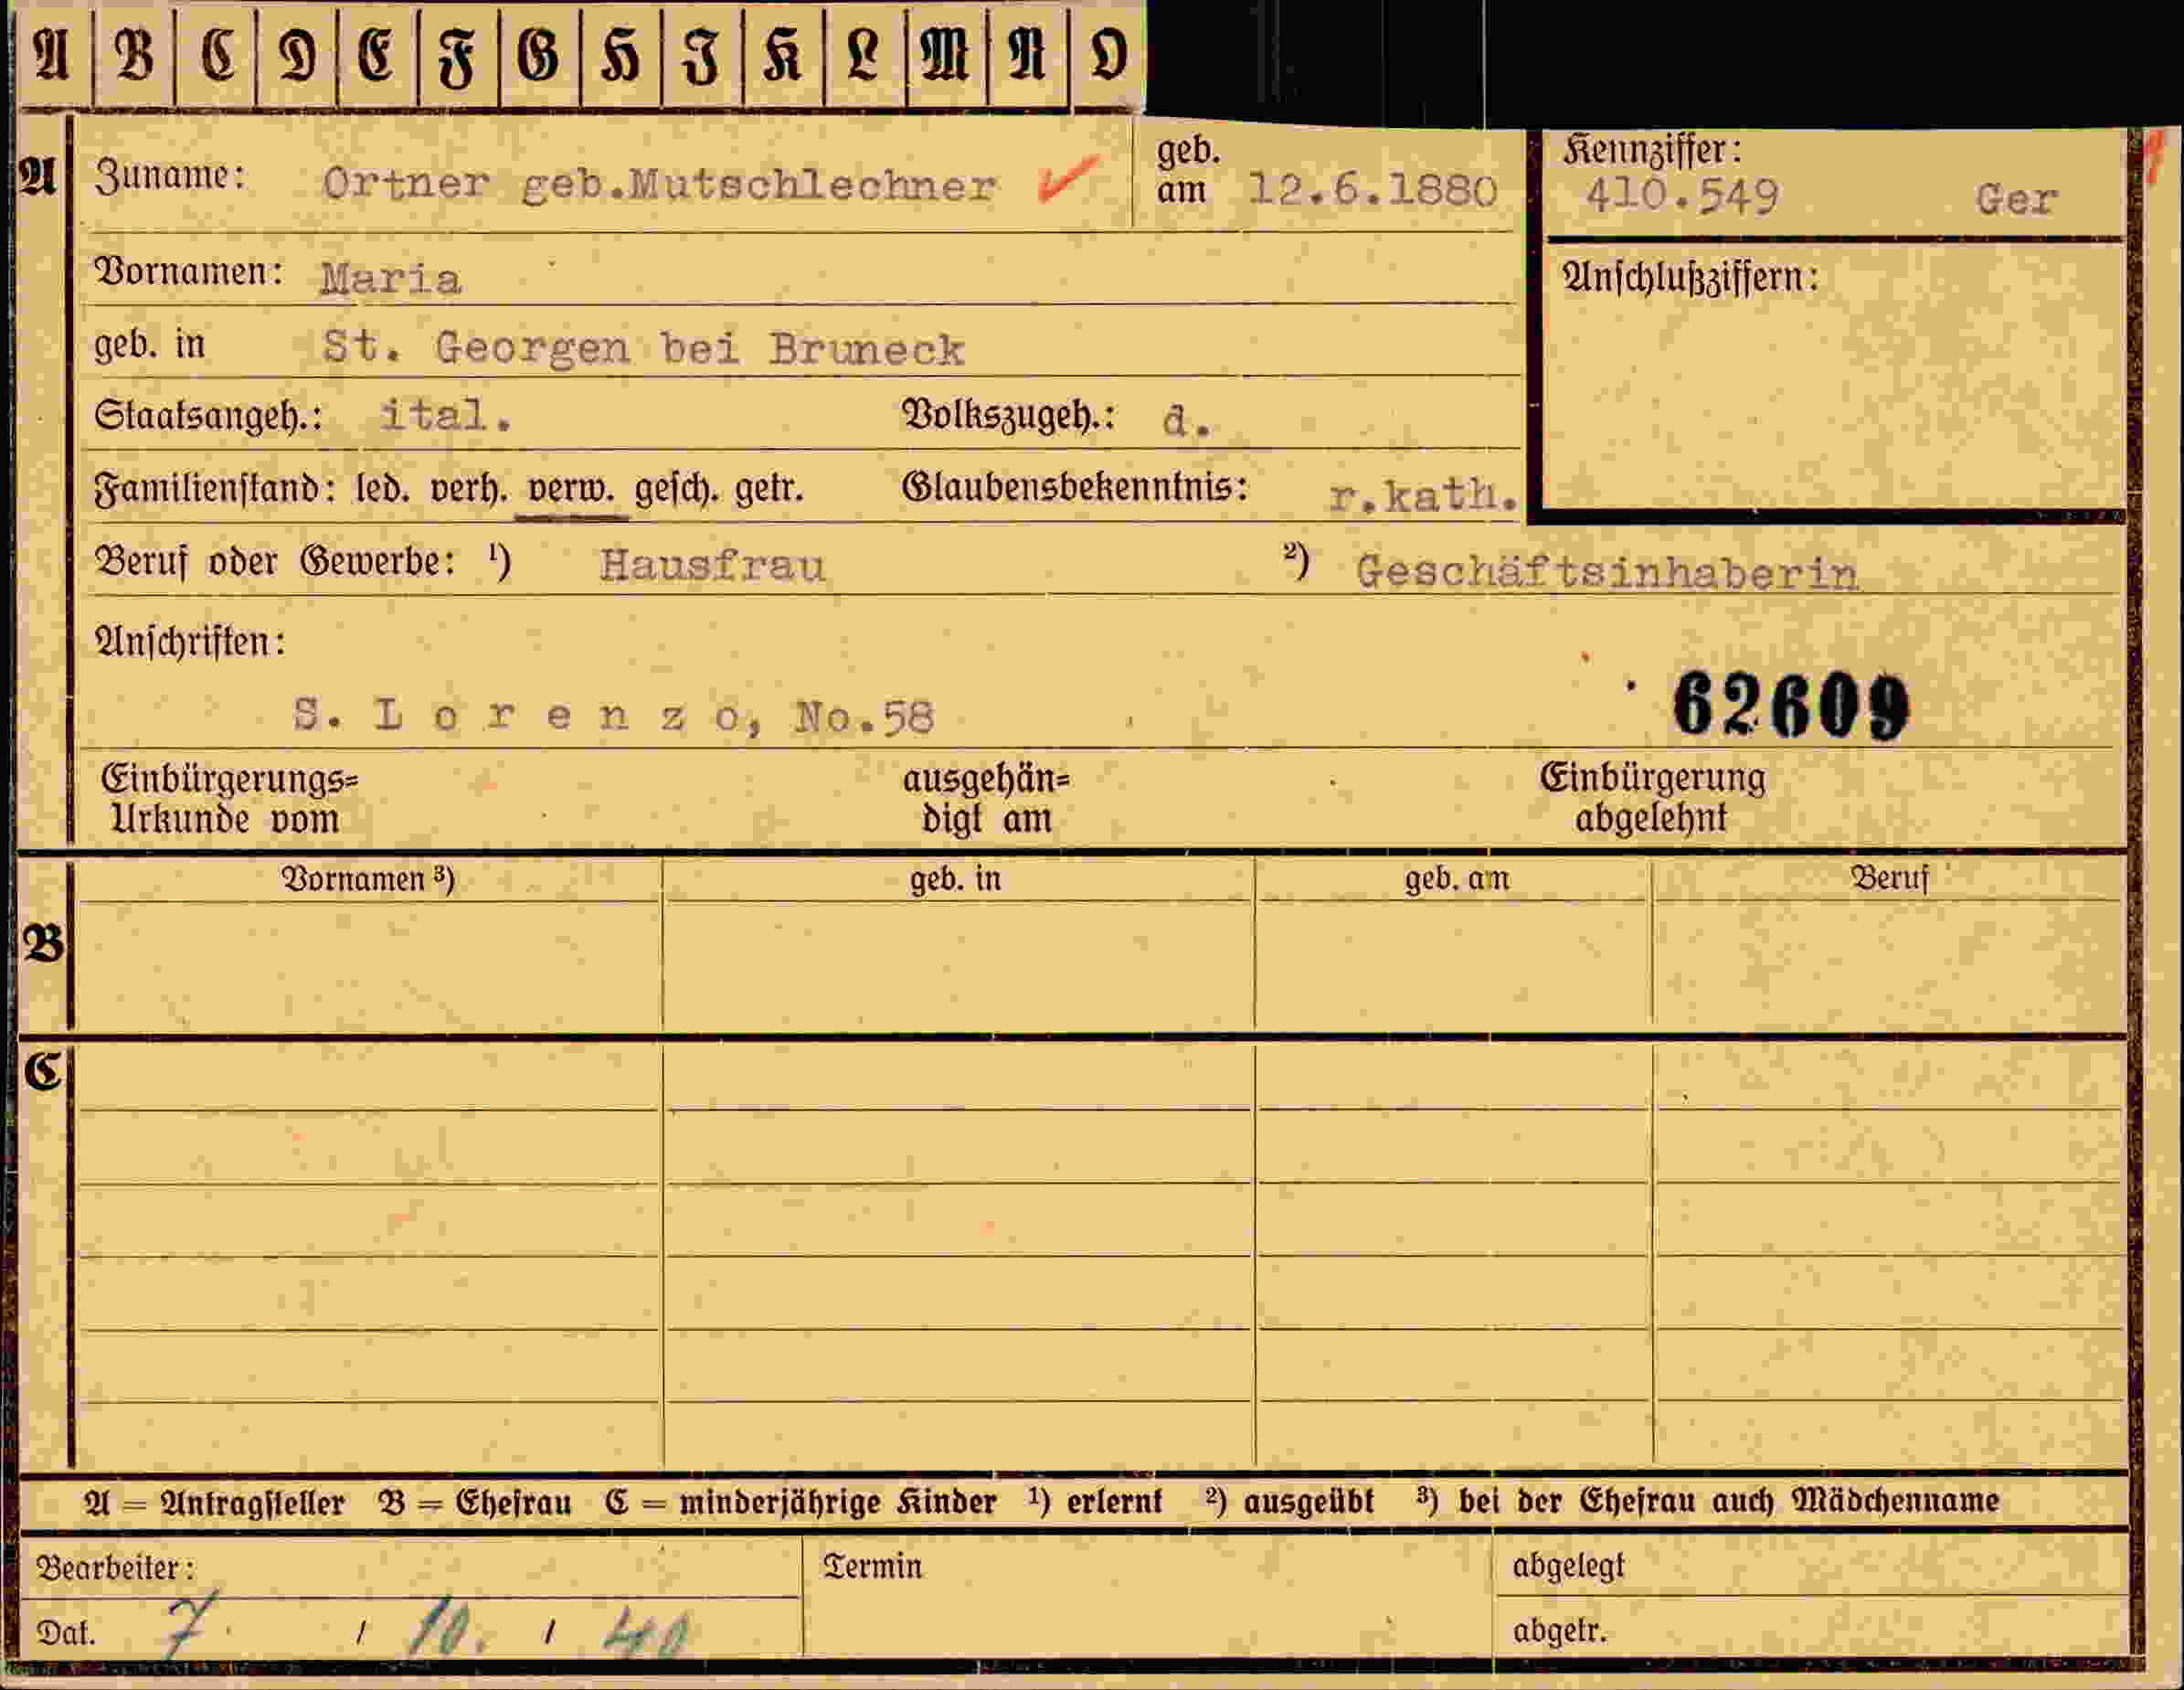 A B C D E F G H I K L M N O
A Zuname: Ortner geb.Mutschlechner geb. am 12.6.1880
Kennziffer: 410.549 Ger
Vornamen: Maria
Anschlußziffern:
geb. in St. Georgen bei Bruneck
Staatsangeh.: ital. Volkszugeh.: d.
Familienstand: led. verh. verw. gesch. getr. Glaubensbekenntnis: r.kath.
Beruf oder Gewerbe: ¹) Hausfrau ²) Geschäftsinhaberin
Anschriften:
S. L o r e n z o, No.58 62609
Einbürgerungs= ausgehän= Einbürgerung
Urkunde vom digt am abgelehnt
Vornamen ³) geb. in geb. am Beruf
B
C
A = Antragsteller B = Ehefrau C = minderjährige Kinder ¹) erlernt ²) ausgeübt ³) bei der Ehefrau auch Mädchenname
Bearbeiter: Termin abgelegt
Dat. 7. / 10. / 40 abgetr.